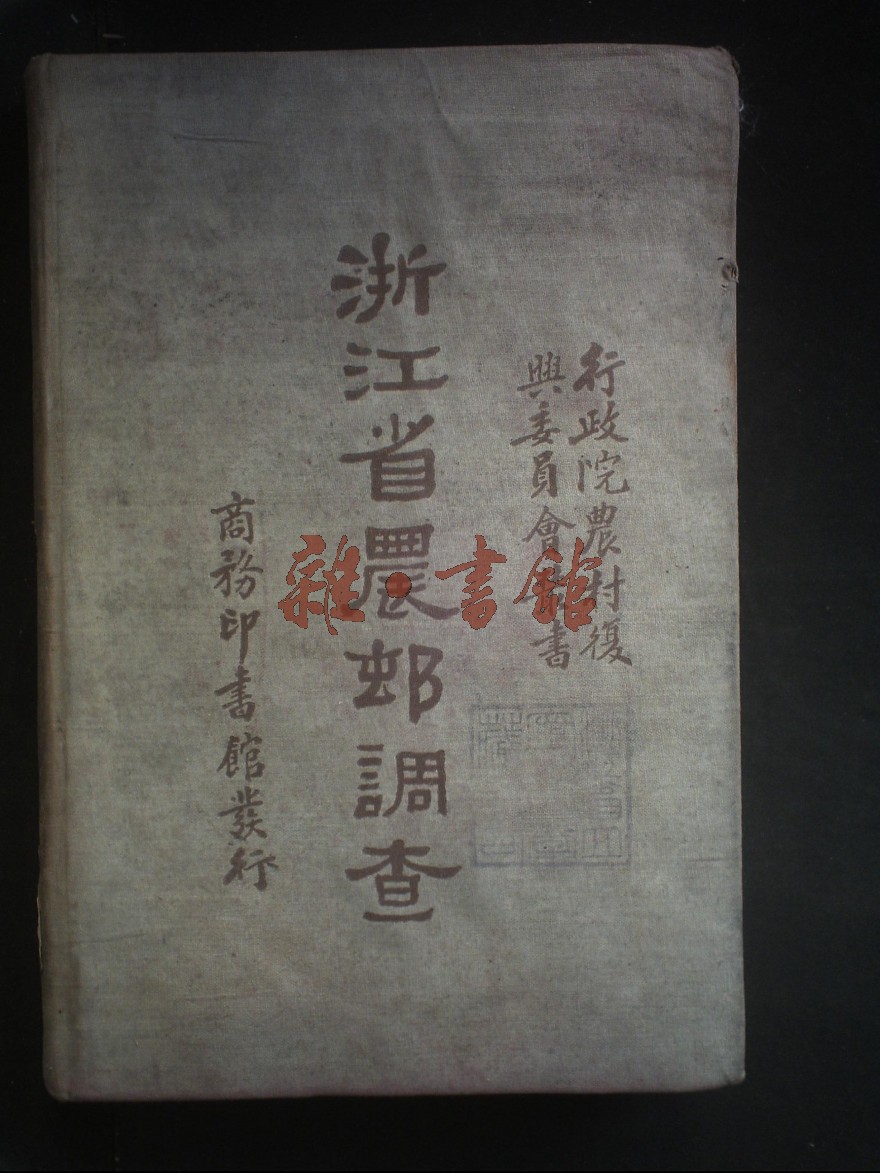 行政院農村復
興委員會 書
浙江省農邨調查
商務印書館發行
雜·書館